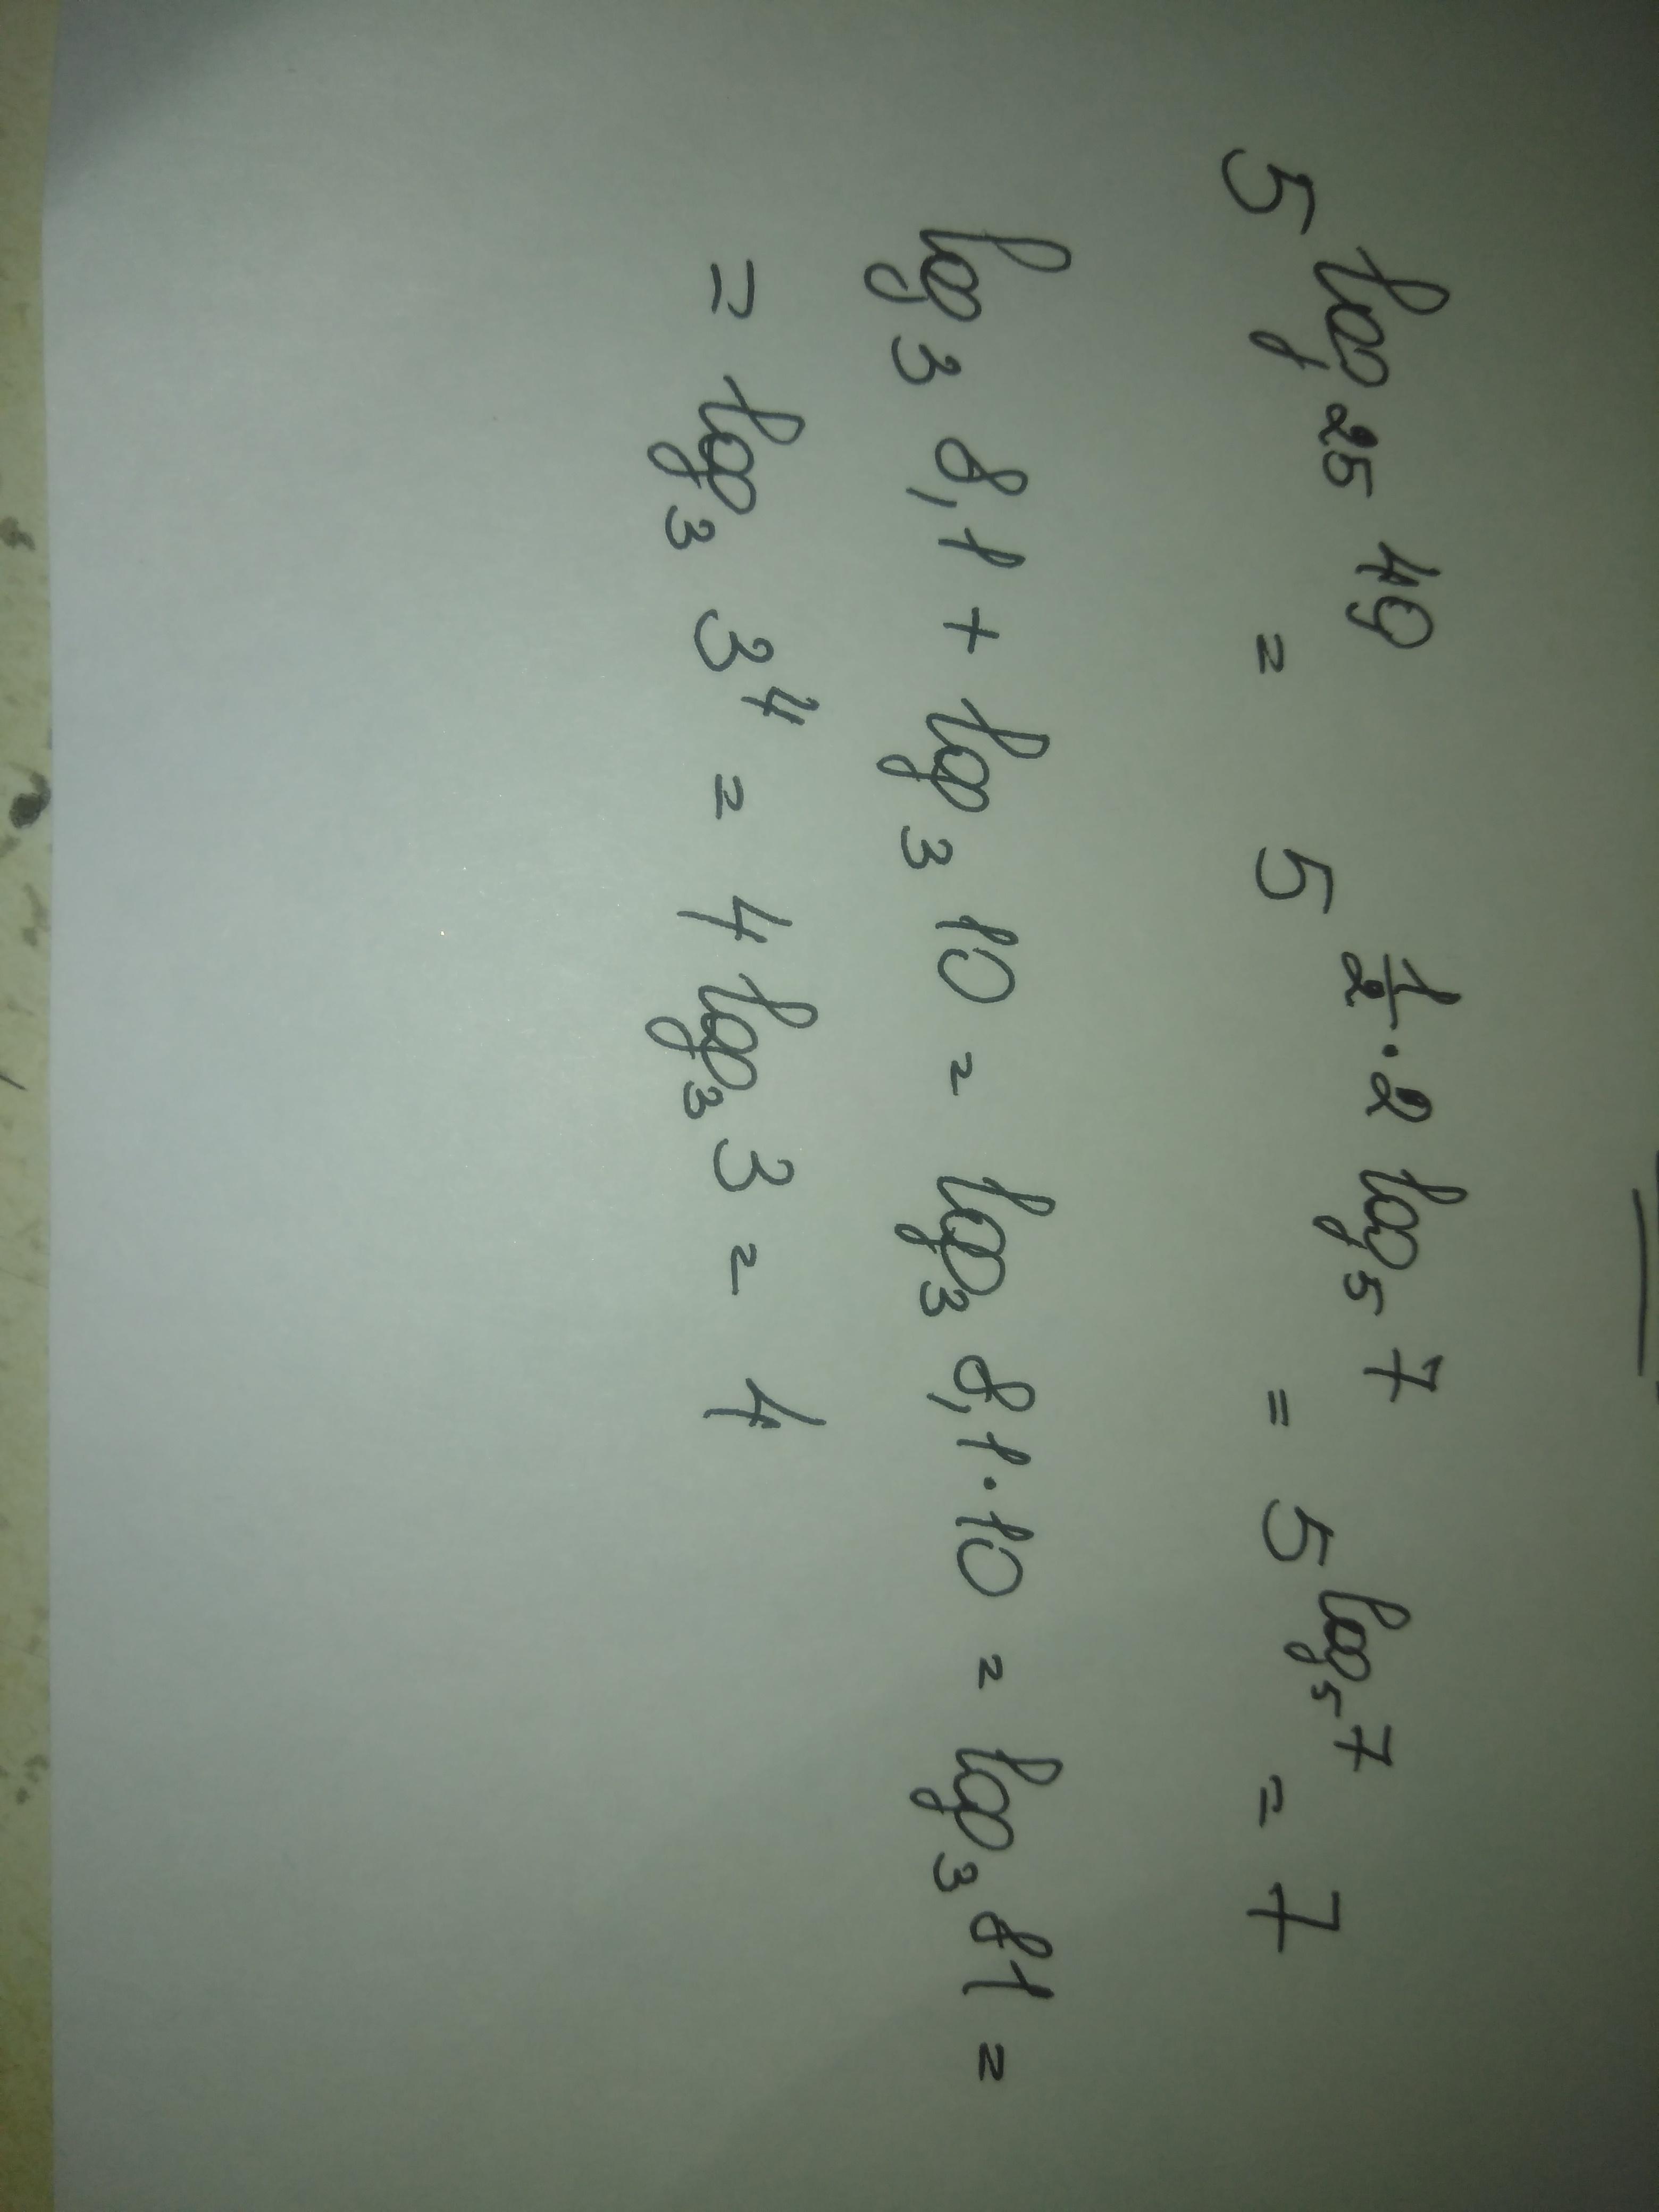 5^{log_{25} 49} = 5^{\frac{1}{2} · 2 log_5 7} = 5^{log_5 7} = 7
log_3 8,1 + log_3 10 = log_3 8,1 · 10 = log_3 81 =
= log_3 3^4 = 4 log_3 3 = 4